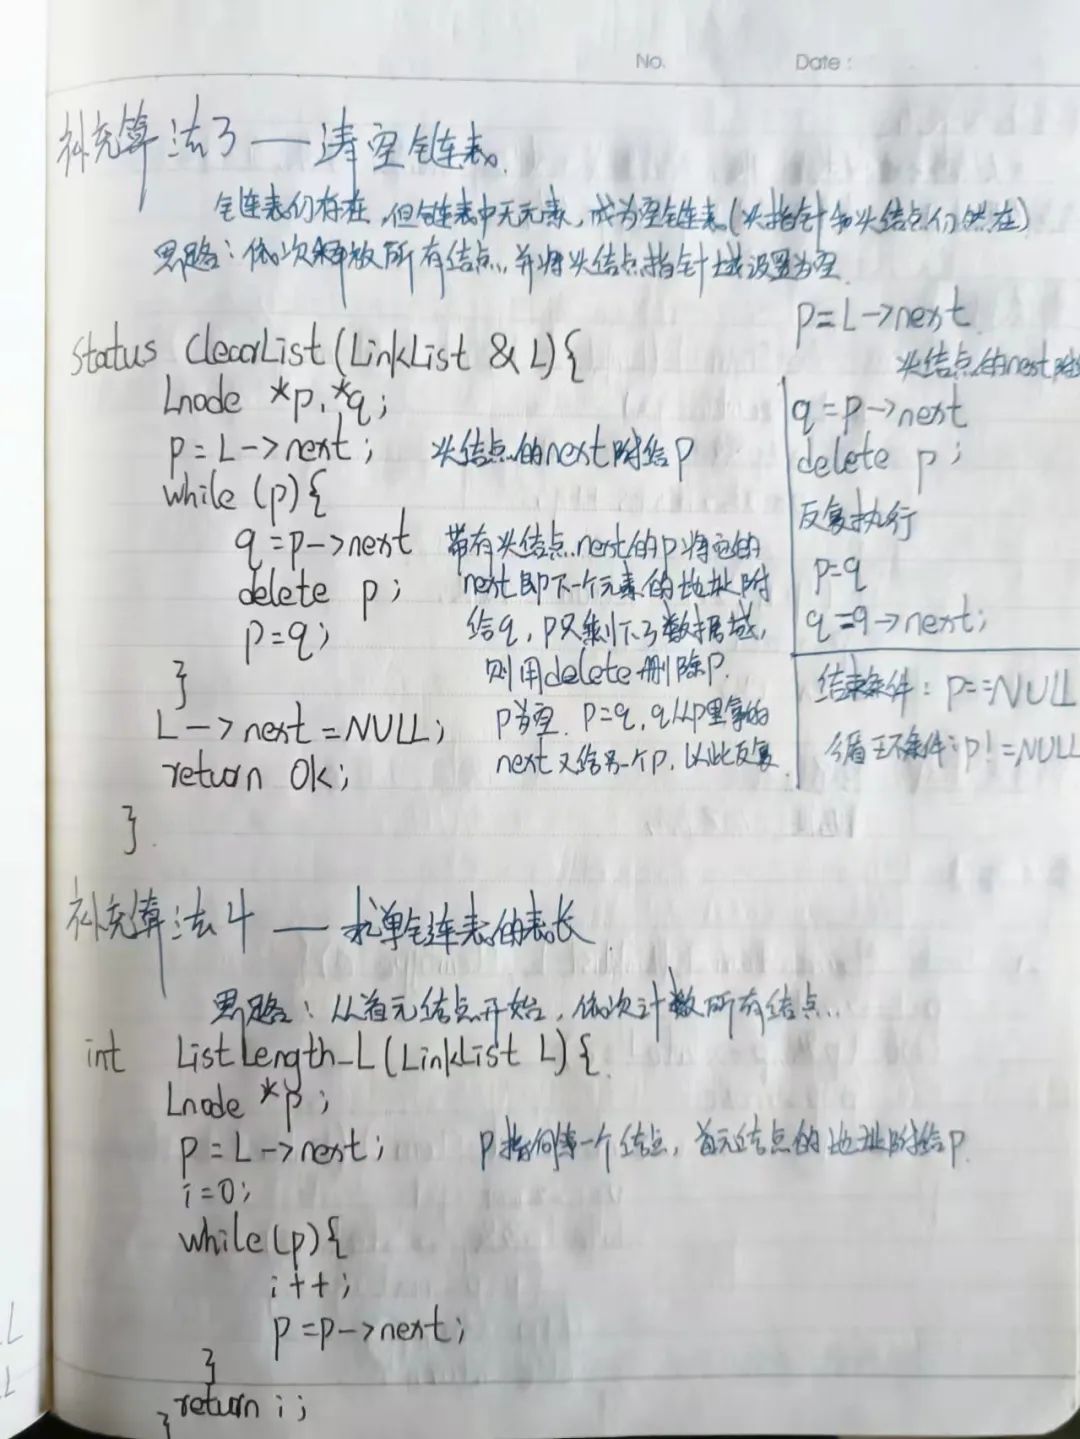 No.    Date:
补充算法3——清空链表
链表仍存在,但链表中无元素,成为空链表(头指针和头结点仍然在)
思路:依次释放所有结点,并将头结点指针域设置为空
Status ClearList(LinkList & L){
Lnode *p,*q;
p=L->next; 头结点的next附给p
while(p){
q=p->next 带有头结点next的p将它的
delete p; next即下一个元素的地址附
p=q; 给q,p只剩下了数据域,
则用delete删除p.
}
L->next=NULL; p为空.p=q,q从p里拿的
return OK; next又给另一个p,以此反复
}.
p=L->next
头结点的next附给
q=p->next
delete p;
反复执行
p=q
q=q->next;
结束条件:p==NULL
循环条件:p!=NULL
补充算法4——求单链表的表长
思路:从首元结点开始,依次计数所有结点.
int ListLength_L(LinkList L){
Lnode *p;
p=L->next; p指向第一个结点,首元结点的地址附给p.
i=0;
while(p){
i++;
p=p->next;
}
return i;
}